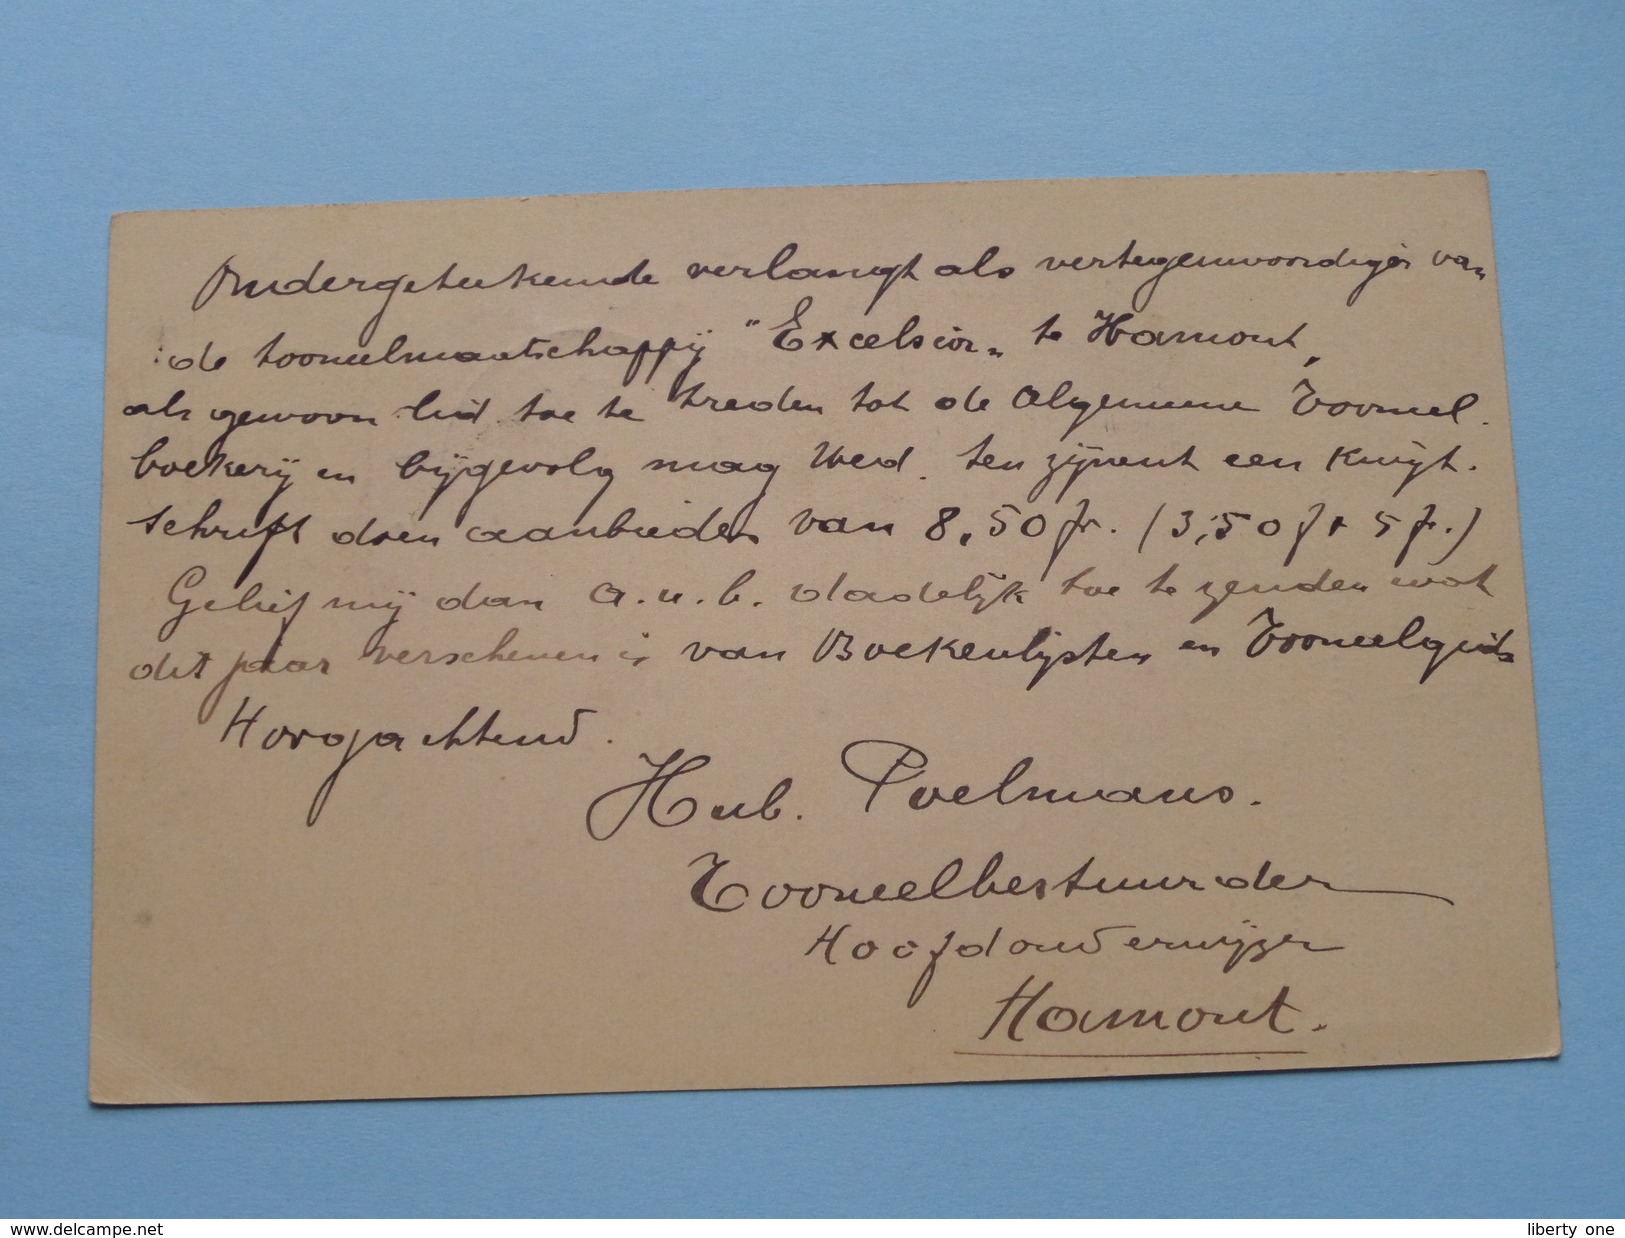 Ondergeteekende verlangt als vertegenwoordiger van
de tooneelmaatschappij "Excelsior" te Hamont,
als gewoon lid toe te treden tot de Algemeene Tooneel-
boekerij en bijgevolg mag Uwed. ten zijnent een kwijt-
schrift doen aanbieden van 8,50 fr. (3,50 f + 5 fr.)
Gelief mij dan a.u.b. dadelijk toe te zenden wat
dit jaar verschenen is van Boekenlijsten en Tooneelgids
Hoogachtend.
Hub. Poelmans.
Tooneelbestuurder
Hoofdonderwijzer
Hamont.
www.delcampe.net
liberty one